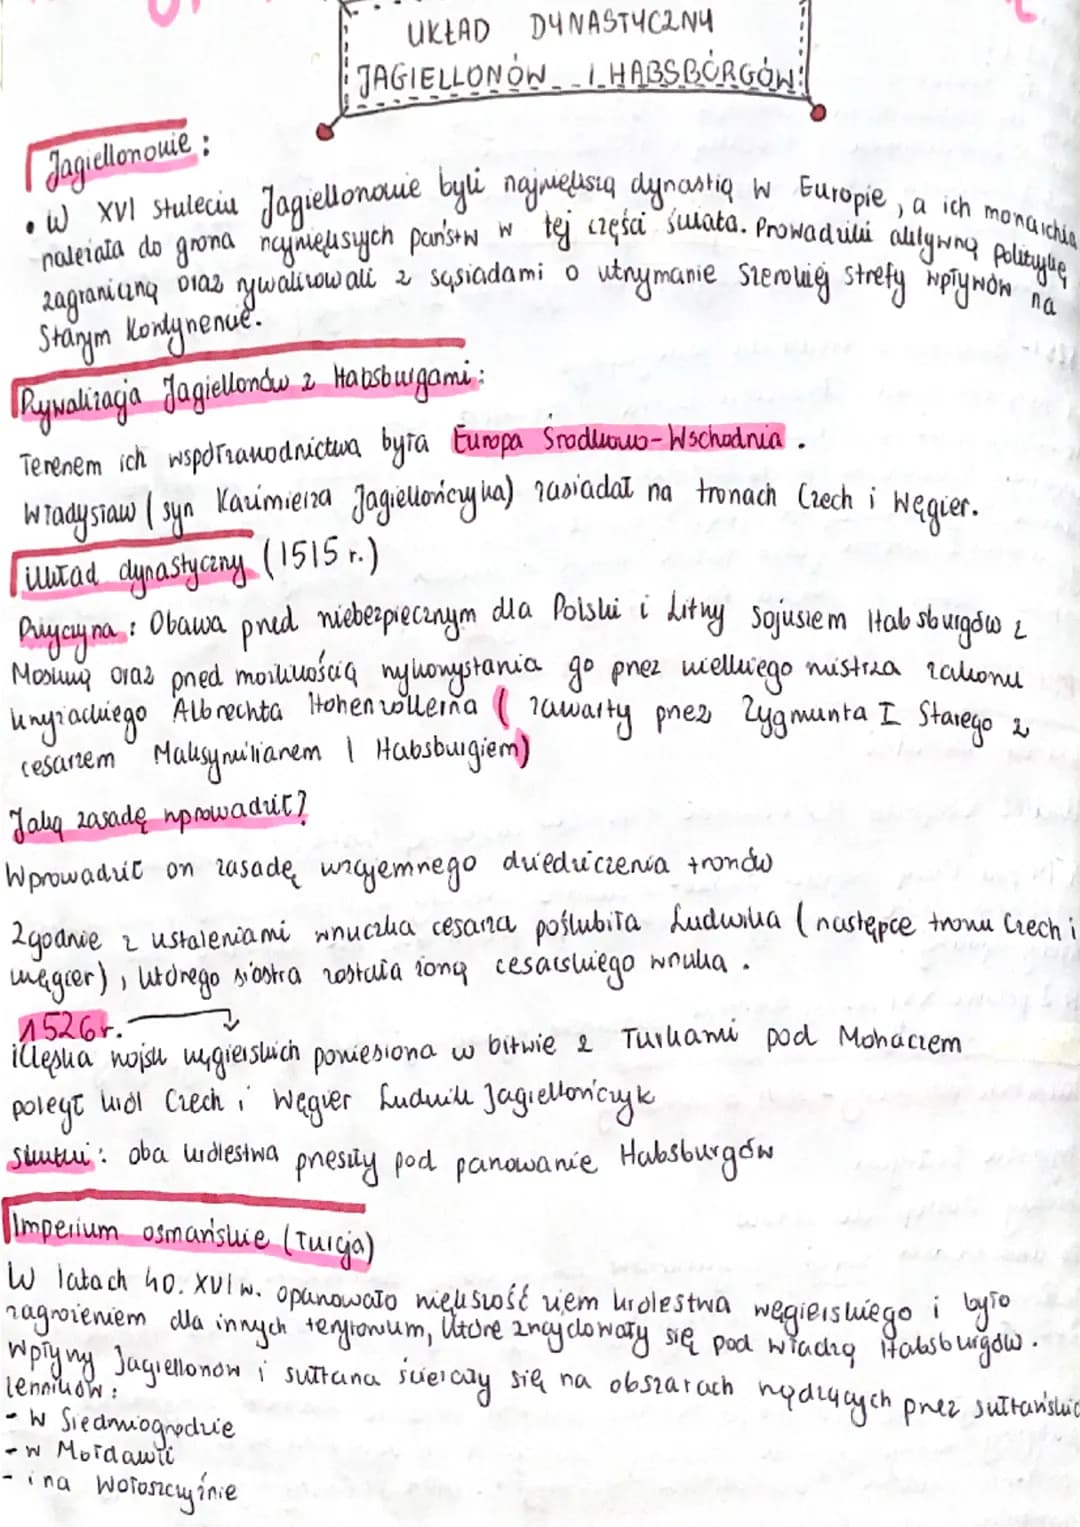 UKŁAD DYNASTYCZNY
JAGIELLONÓW I HABSBURGÓW:
Jagiellonowie:
• W XVI stuleciu Jagiellonowie byli największą dynastią w Europie, a ich monarchia
należała do grona największych państw w tej części świata. Prowadzili aktywną politykę
zagraniczną oraz rywalizowali z sąsiadami o utrzymanie szerokiej strefy wpływów na
Starym Kontynencie.
Rywalizacja Jagiellonów z Habsburgami:
Terenem ich współzawodnictwa była Europa Środkowo-Wschodnia.
Władysław (syn Kazimierza Jagiellończyka) zasiadał na tronach Czech i Węgier.
Układ dynastyczny (1515 r.)
Przyczyna: Obawa przed niebezpiecznym dla Polski i Litwy sojuszem Habsburgów z
Moskwą oraz przed możliwością wykorzystania go przez wielkiego mistrza zakonu
krzyżackiego Albrechta Hohenzollerna (zawarty przez Zygmunta I Starego z
cesarzem Maksymilianem I Habsburgiem)
Jaką zasadę wprowadził?
Wprowadził on zasadę wzajemnego dziedziczenia tronów
Zgodnie z ustaleniami wnuczka cesarza poślubiła Ludwika (następce tronu Czech i
węgier), którego siostra została żoną cesarskiego wnuka.
1526r.
klęska wojsk węgierskich poniesiona w bitwie z Turkami pod Mohaczem
poległ król Czech i Węgier Ludwik Jagiellończyk
skutki: oba królestwa przeszły pod panowanie Habsburgów
Imperium osmańskie (Turcja)
W latach 40. XVI w. opanowało większość ziem królestwa węgierskiego i było
zagrożeniem dla innych terytorium, które znajdowały się pod władzą Habsburgów.
Wpływy Jagiellonów i sułtana ścierały się na obszarach rządzących przez sułtańskic
lenników:
- w Siedmiogrodzie
- w Mołdawii
- i na Wołoszczyźnie